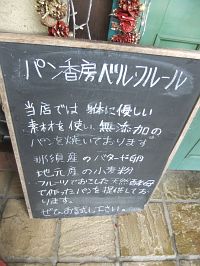 パン香房ベル・フルール
当店では 躰に優しい
素材を使い、無添加の
パンを焼いております
那須産のバターや卵
地元産の小麦粉
フルーツでおこした天然酵母
で作ったパンを提供してお
ります。
ぜひお試し下さい。